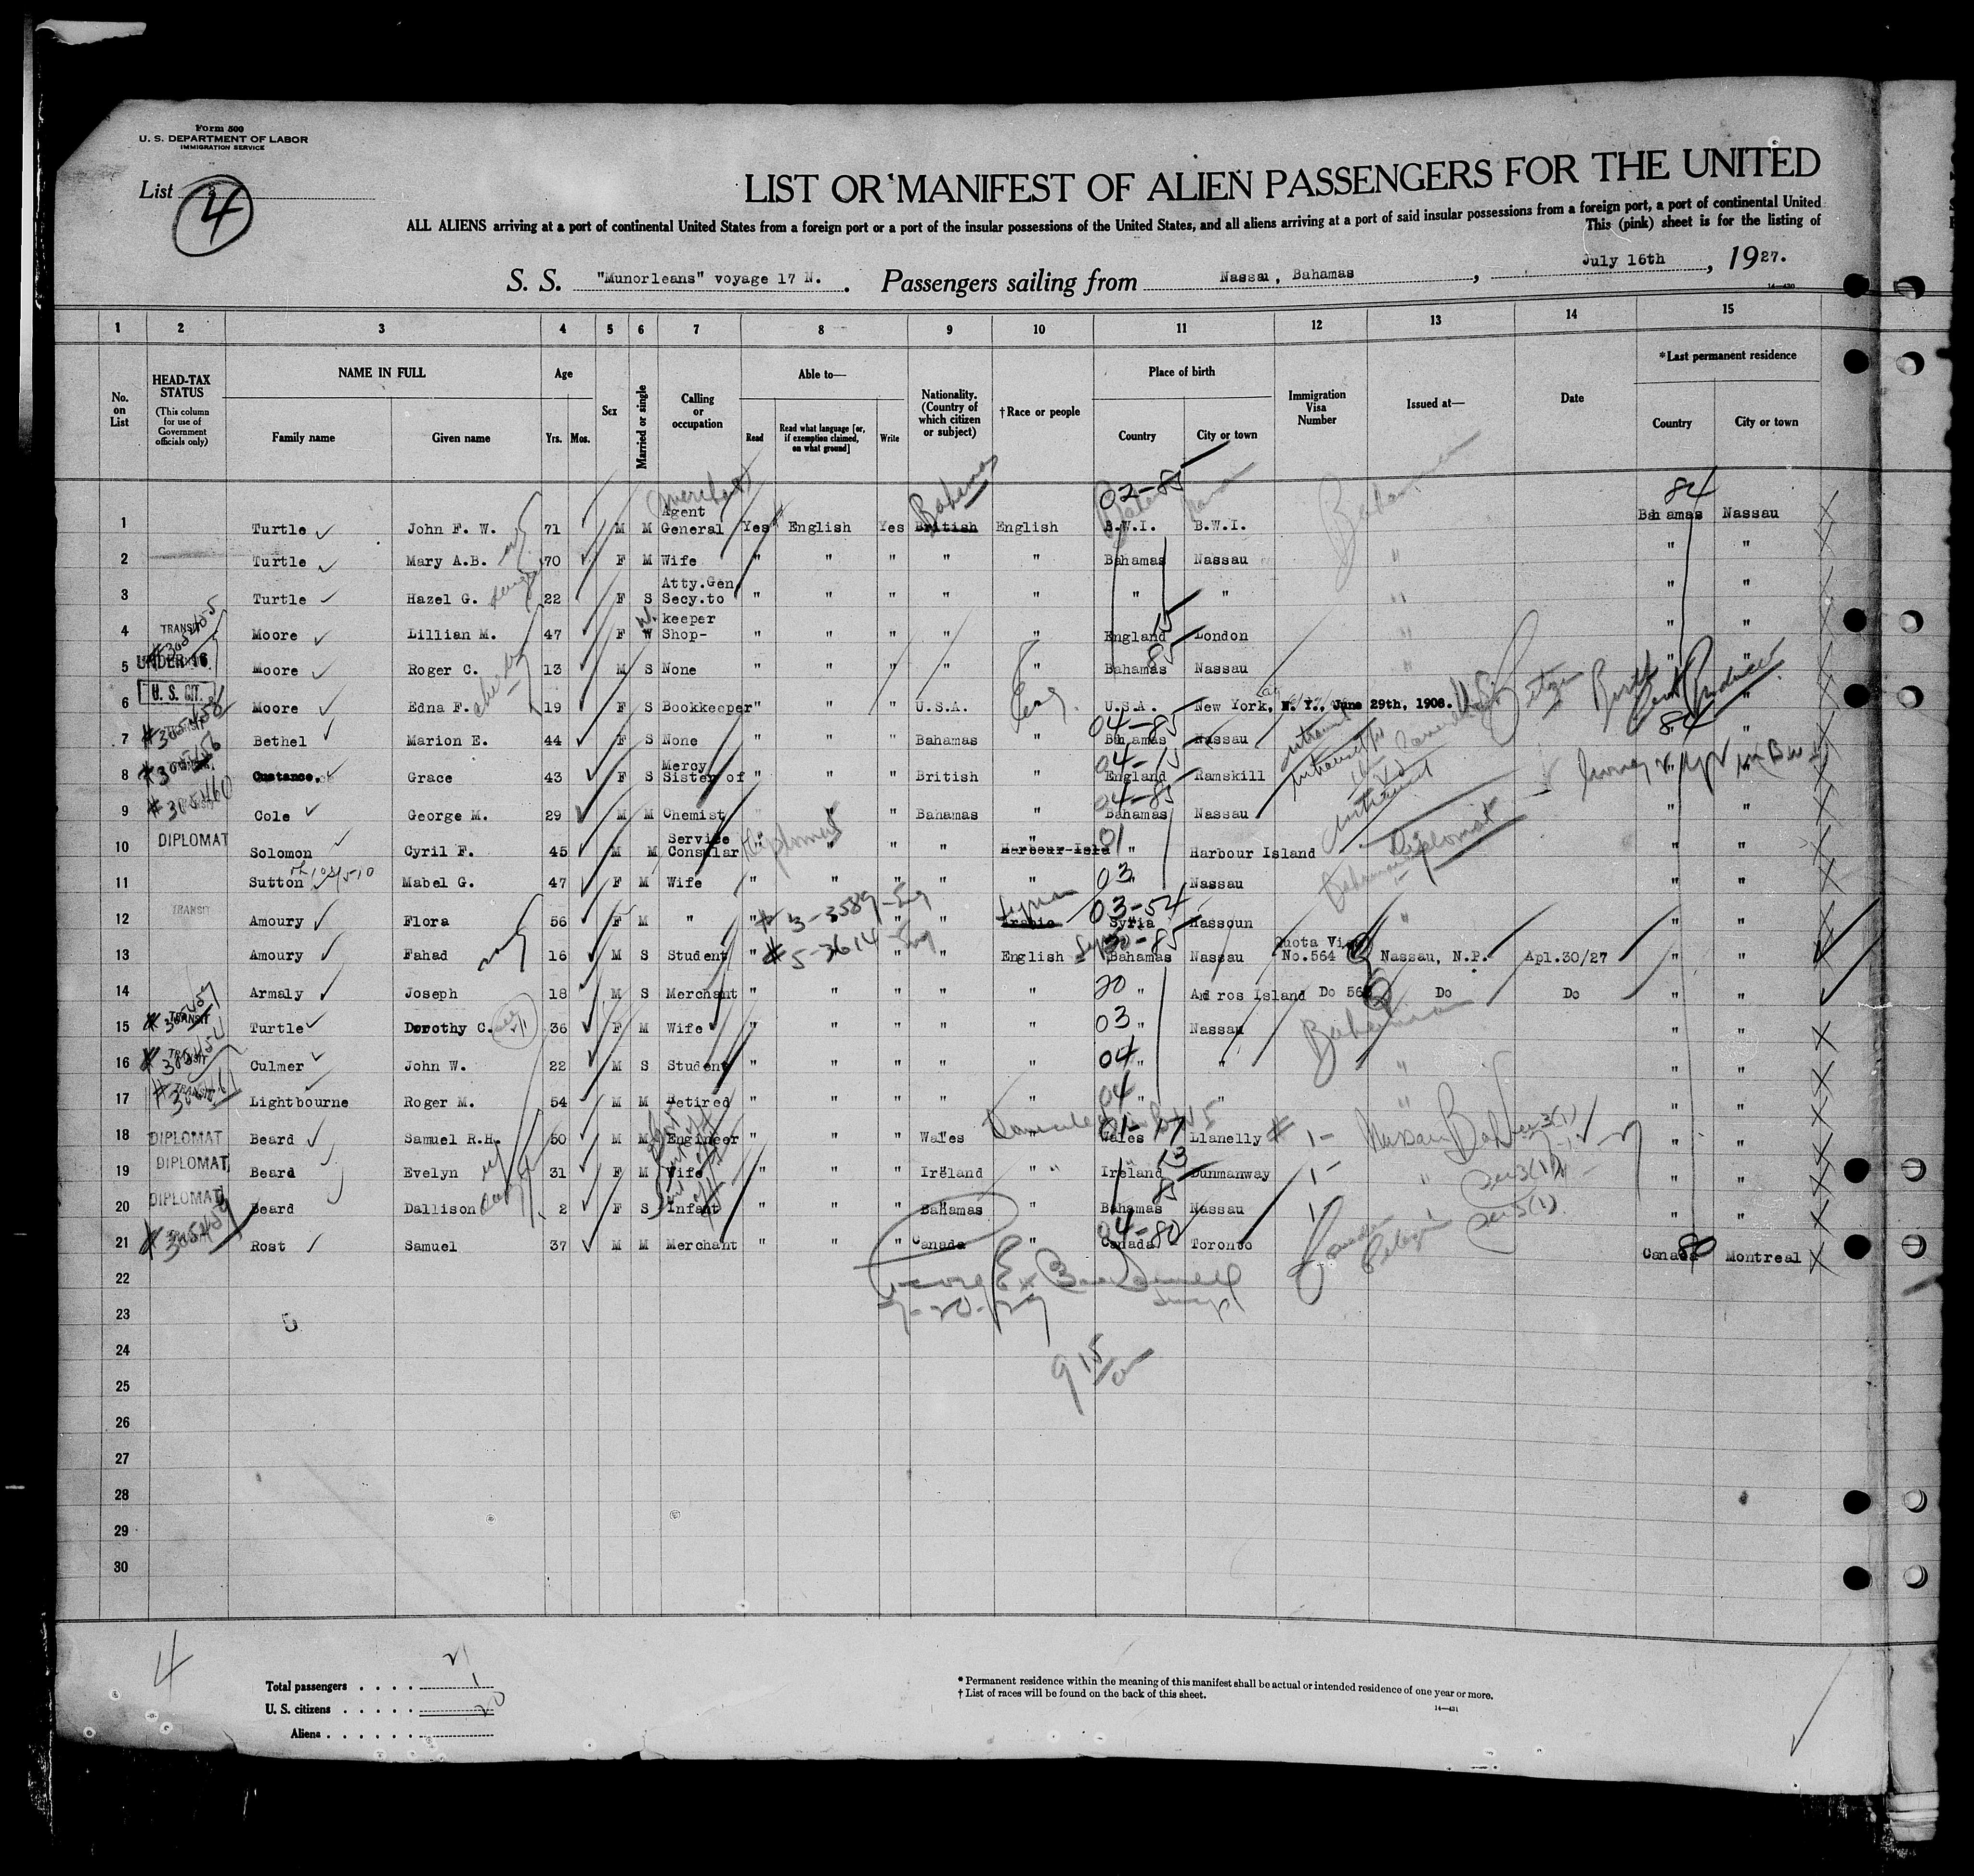 Form 500
U. S. DEPARTMENT OF LABOR
IMMIGRATION SERVICE
List 4
LIST OR MANIFEST OF ALIEN PASSENGERS FOR THE UNITED
ALL ALIENS arriving at a port of continental United States from a foreign port or a port of the insular possessions of the United States, and all aliens arriving at a port of said insular possessions from a foreign port, a port of continental United
This (pink) sheet is for the listing of
S. S. "Munorleans" voyage 17 N. Passengers sailing from Nassau, Bahamas, July 16th, 1927.
14—430
1 2 3 4 5 6 7 8 9 10 11 12 13 14 15
No. on List
HEAD-TAX STATUS
(This column for use of Government officials only)
NAME IN FULL
Family name
Given name
Age
Yrs. Mos.
Sex
Married or single
Calling or occupation
Able to—
Read
Read what language [or, if exemption claimed, on what ground]
Write
Nationality. (Country of which citizen or subject)
†Race or people
Place of birth
Country
City or town
Immigration Visa Number
Issued at—
Date
*Last permanent residence
Country
City or town
Merchant Bahamas 02-85 Bahamas 84
1 Turtle John F. W. 71 M M Agent General Yes English Yes British English B.W.I. B.W.I. Bahamas Nassau
2 Turtle Mary A.B. 70 F M Wife " " " " " Bahamas Nassau " " "
3 Turtle Hazel G. 22 F S Atty.Gen Secy.to " " " " " " " " " "
4 TRANSIT Moore Lillian M. 47 F W keeper Shop- " " " " " England 15 London " " "
5 UNDER 16 Moore Roger C. 13 M S None " " " " " Bahamas 85 Nassau " " "
6 U. S. CIT. Moore Edna F. 19 F S Bookkeeper " " " U.S.A. Eng. U.S.A. New York, N. Y., June 29th, 1908. "
7 #305458 Bethel Marion E. 44 F S None " " " Bahamas " 04-85 Bahamas Nassau 84 "
8 #305456 Custance. Grace 43 F S Mercy Sister of " " " British " 04-15 England Ramskill " "
9 #305460 Cole George M. 29 M M Chemist " " " Bahamas " 04-85 Bahamas Nassau " "
10 DIPLOMAT Solomon Cyril F. 45 M M Service Consular Diplomat " " " " Harbour-Isld 01 " Harbour Island Diplomat " "
11 Sutton Mabel G. 47 F M Wife " " " " " 03 " Nassau " "
12 TRANSIT Amoury Flora 56 F M " " #3-3589-Eng " " Arabic Syrian 03-54 Syria Hassoun " " "
13 Amoury Fahad 16 M S Student " #5-3614-Eng " " English 85 Bahamas Nassau Quota Visa No.564 Nassau, N.P. Apl.30/27 " "
14 Armaly Joseph 18 M S Merchant " " " " " 20 " Andros Island Do 56 Do Do " "
15 #305457 TRANSIT Turtle Dorothy C. 36 F M Wife " " " " " 03 " Nassau Bahamas " "
16 TRANSIT Culmer John W. 22 M S Student " " " " " 04 " " " " "
17 TRANSIT Lightbourne Roger M. 54 M M Retired " " " " " 04 " " " " "
18 DIPLOMAT Beard Samuel R.H. 50 M M Engineer " " " Wales " 01-17 Wales Llanelly # 1- Nassau " "
19 DIPLOMAT Beard Evelyn 31 F M Wife " " " Ireland " " Ireland 13 Dunmanway 1- " Sec 3(1) " "
20 DIPLOMAT Beard Dallison 2 F S Infant " " " Bahamas " Bahamas 85 Nassau 1 Sec 3(1) " "
21 #305459 Rost Samuel 37 M M Merchant " " " Canada " 04-80 Canada Toronto Canada 80 Montreal
22
23
24
25
26
27
28
29
30
915
4
Total passengers . . . . 21
U. S. citizens . . . . . 1
Aliens . . . . . . 20
* Permanent residence within the meaning of this manifest shall be actual or intended residence of one year or more.
† List of races will be found on the back of this sheet.
14—431